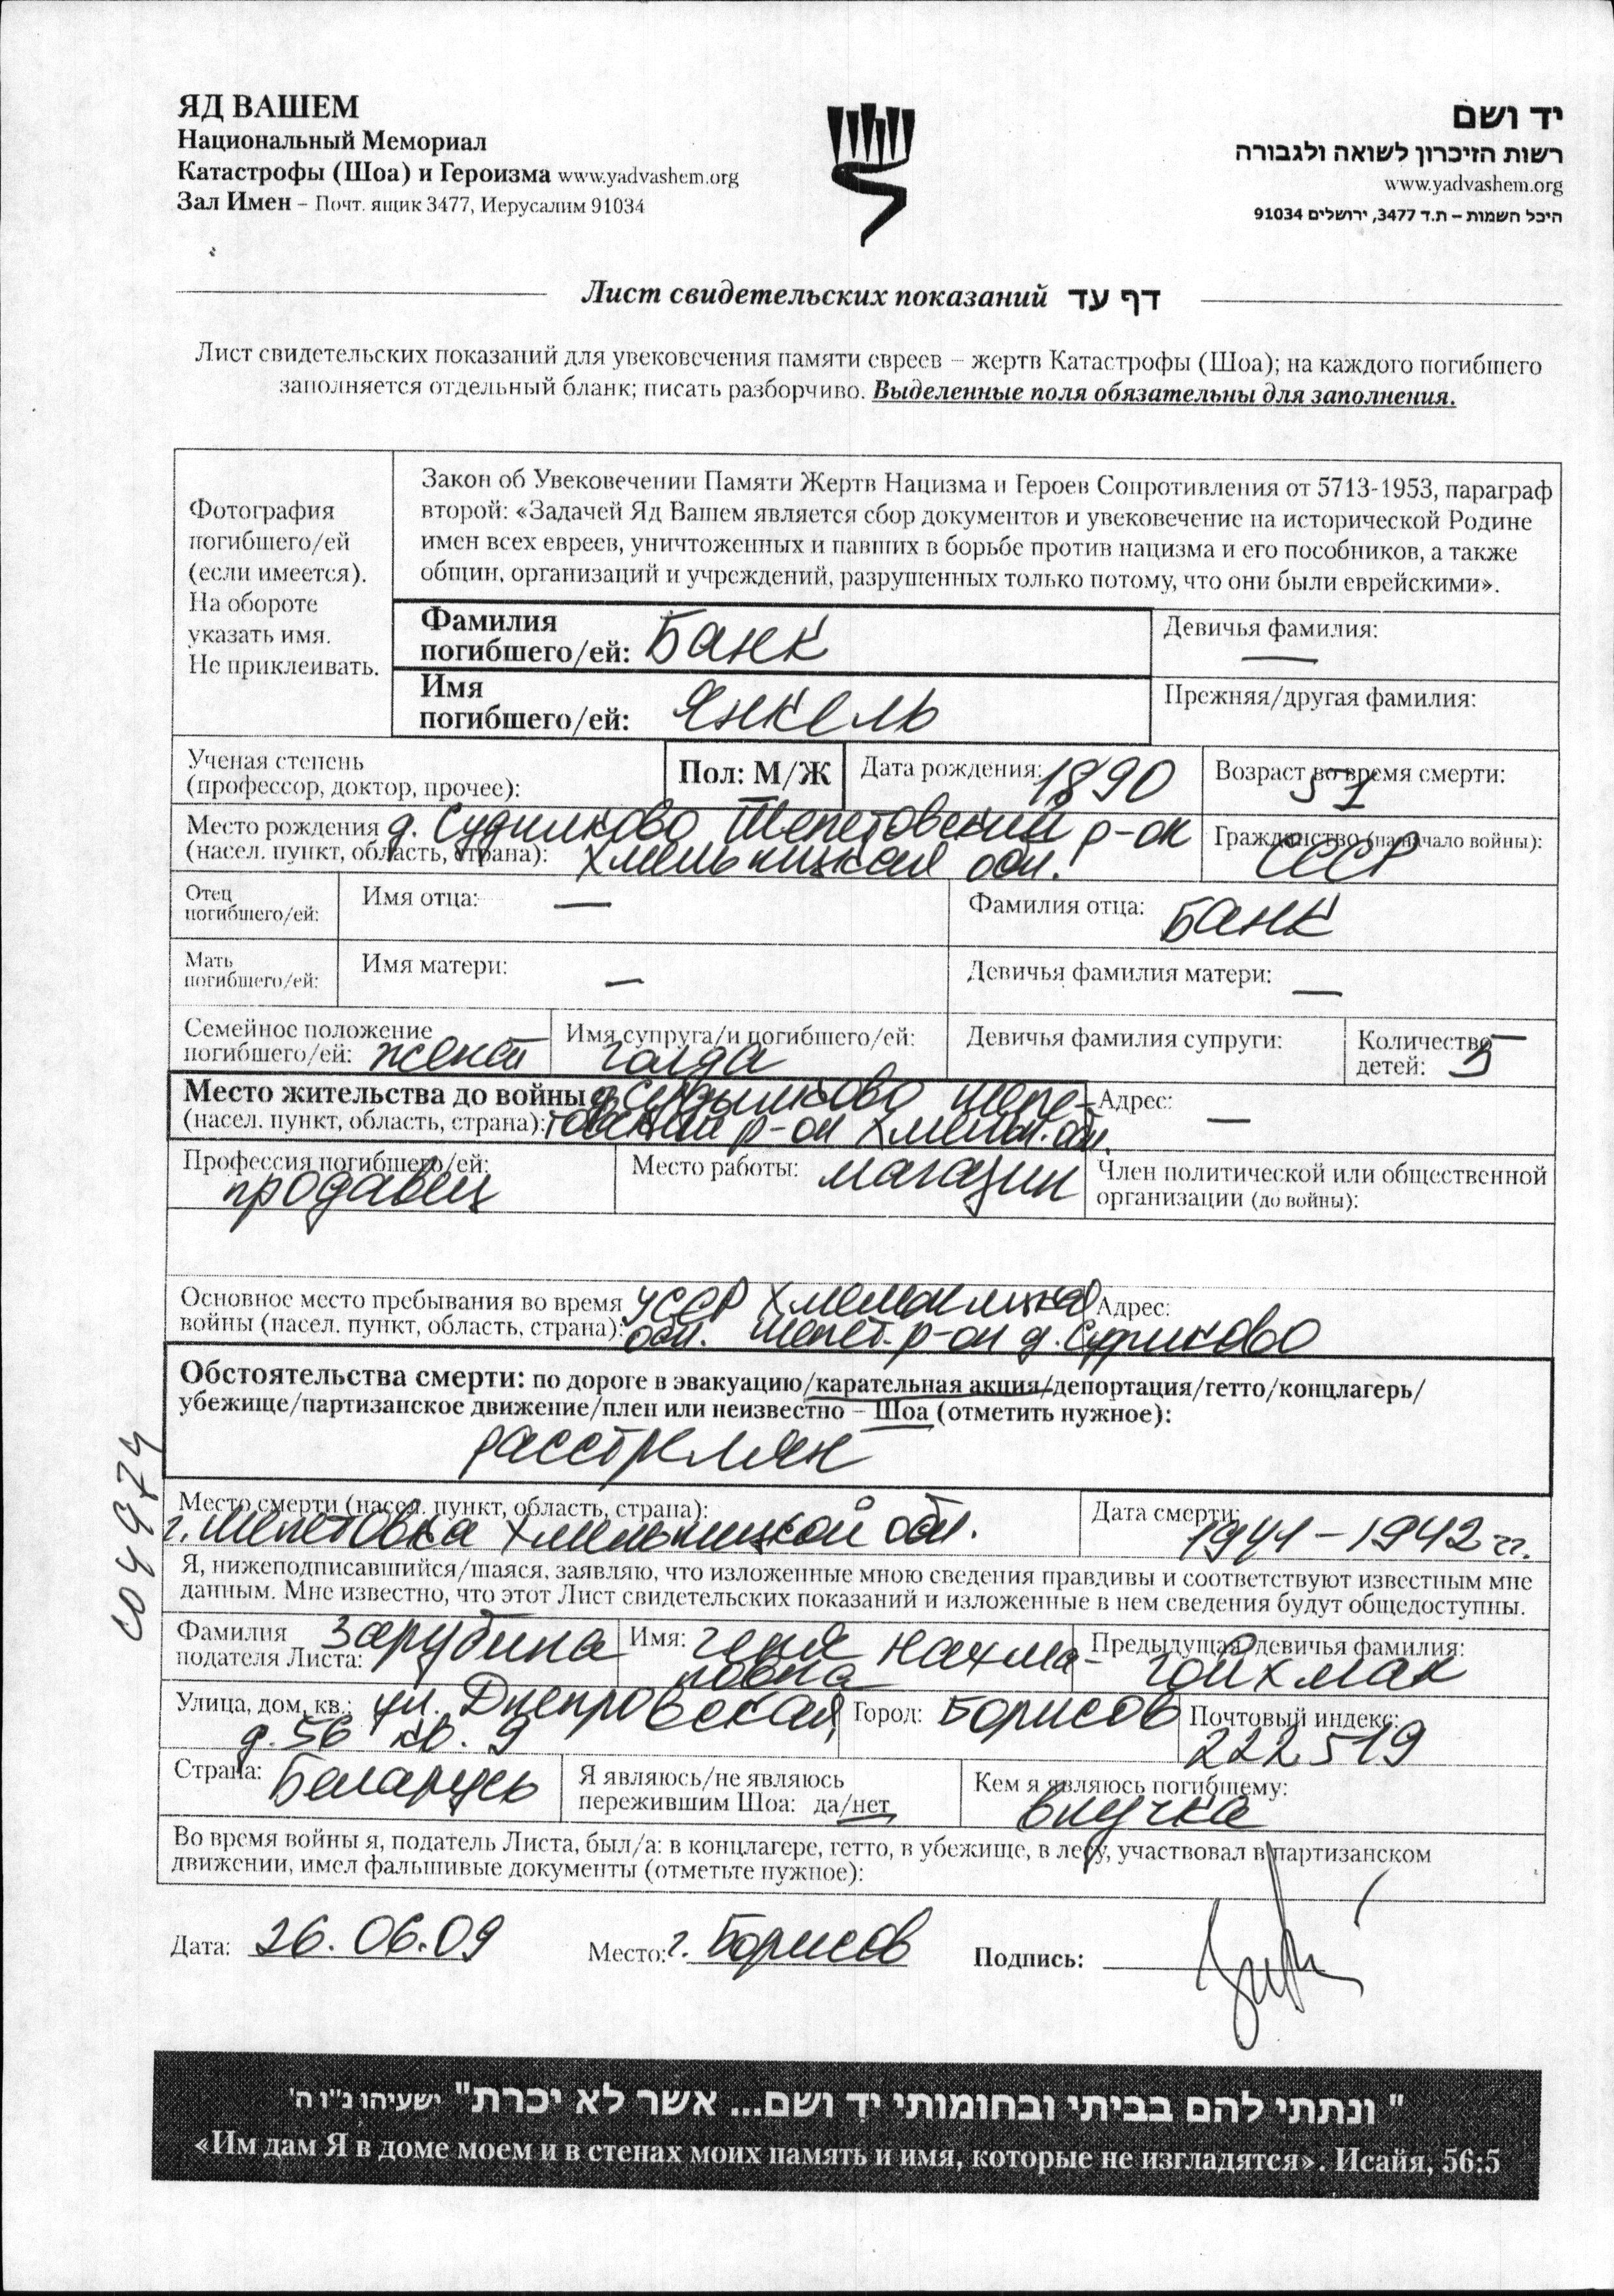 ЯД ВАШЕМ
Национальный Мемориал
Катастрофы (Шоа) и Героизма www.yadvashem.org
Зал Имен – Почт. ящик 3477, Иерусалим 91034
יד ושם
רשות הזיכרון לשואה ולגבורה
www.yadvashem.org
היכל השמות – ת.ד 3477, ירושלים 91034
Лист свидетельских показаний דף עד
Лист свидетельских показаний для увековечения памяти евреев – жертв Катастрофы (Шоа); на каждого погибшего
заполняется отдельный бланк; писать разборчиво. Выделенные поля обязательны для заполнения.
Фотография
погибшего/ей
(если имеется).
На обороте
указать имя.
Не приклеивать.
Закон об Увековечении Памяти Жертв Нацизма и Героев Сопротивления от 5713-1953, параграф
второй: «Задачей Яд Вашем является сбор документов и увековечение на исторической Родине
имен всех евреев, уничтоженных и павших в борьбе против нацизма и его пособников, а также
общин, организаций и учреждений, разрушенных только потому, что они были еврейскими».
Фамилия
погибшего/ей: Банк
Девичья фамилия: —
Имя
погибшего/ей: Янкель
Прежняя/другая фамилия:
Ученая степень
(профессор, доктор, прочее):
Пол: М/Ж
Дата рождения: 1890
Возраст во время смерти: 51
Место рождения д. Судилково Шепетовский р-он
(насел. пункт, область, страна): Хмельницкая обл.
Гражданство (на начало войны): СССР
Отец
погибшего/ей:
Имя отца: —
Фамилия отца: Банк
Мать
погибшего/ей:
Имя матери: —
Девичья фамилия матери: —
Семейное положение
погибшего/ей: женат
Имя супруга/и погибшего/ей: Голда
Девичья фамилия супруги:
Количество
детей: 5
Место жительства до войны д. Судылково Шепе-
(насел. пункт, область, страна): товский р-он Хмельн. обл.
Адрес: —
Профессия погибшего/ей: продавец
Место работы: магазин
Член политической или общественной
организации (до войны):
Основное место пребывания во время УССР Хмельницкая
войны (насел. пункт, область, страна): обл. Шепет. р-он д. Судилково
Адрес:
Обстоятельства смерти: по дороге в эвакуацию/карательная акция/депортация/гетто/концлагерь/
убежище/партизанское движение/плен или неизвестно – Шоа (отметить нужное):
расстрелян
Место смерти (насел. пункт, область, страна):
г. Шепетовка Хмельницкой обл.
Дата смерти: 1941–1942 гг.
Я, нижеподписавшийся/шаяся, заявляю, что изложенные мною сведения правдивы и соответствуют известным мне
данным. Мне известно, что этот Лист свидетельских показаний и изложенные в нем сведения будут общедоступны.
Фамилия
подателя Листа: Зарубина
Имя: Геня Нахма-
новна
Предыдущая/девичья фамилия:
Гойхман
Улица, дом, кв.: ул. Днепровская,
д. 56 кв. 9
Город: Борисов
Почтовый индекс:
222519
Страна: Беларусь
Я являюсь/не являюсь
пережившим Шоа: да/нет
Кем я являюсь погибшему:
внучка
Во время войны я, податель Листа, был/а: в концлагере, гетто, в убежище, в лесу, участвовал в партизанском
движении, имел фальшивые документы (отметьте нужное):
Дата: 26.06.09
Место: г. Борисов
Подпись:
"ונתתי להם בביתי ובחומותי יד ושם... אשר לא יכרת" ישעיהו נ"ו ה'
«Им дам Я в доме моем и в стенах моих память и имя, которые не изгладятся». Исайя, 56:5